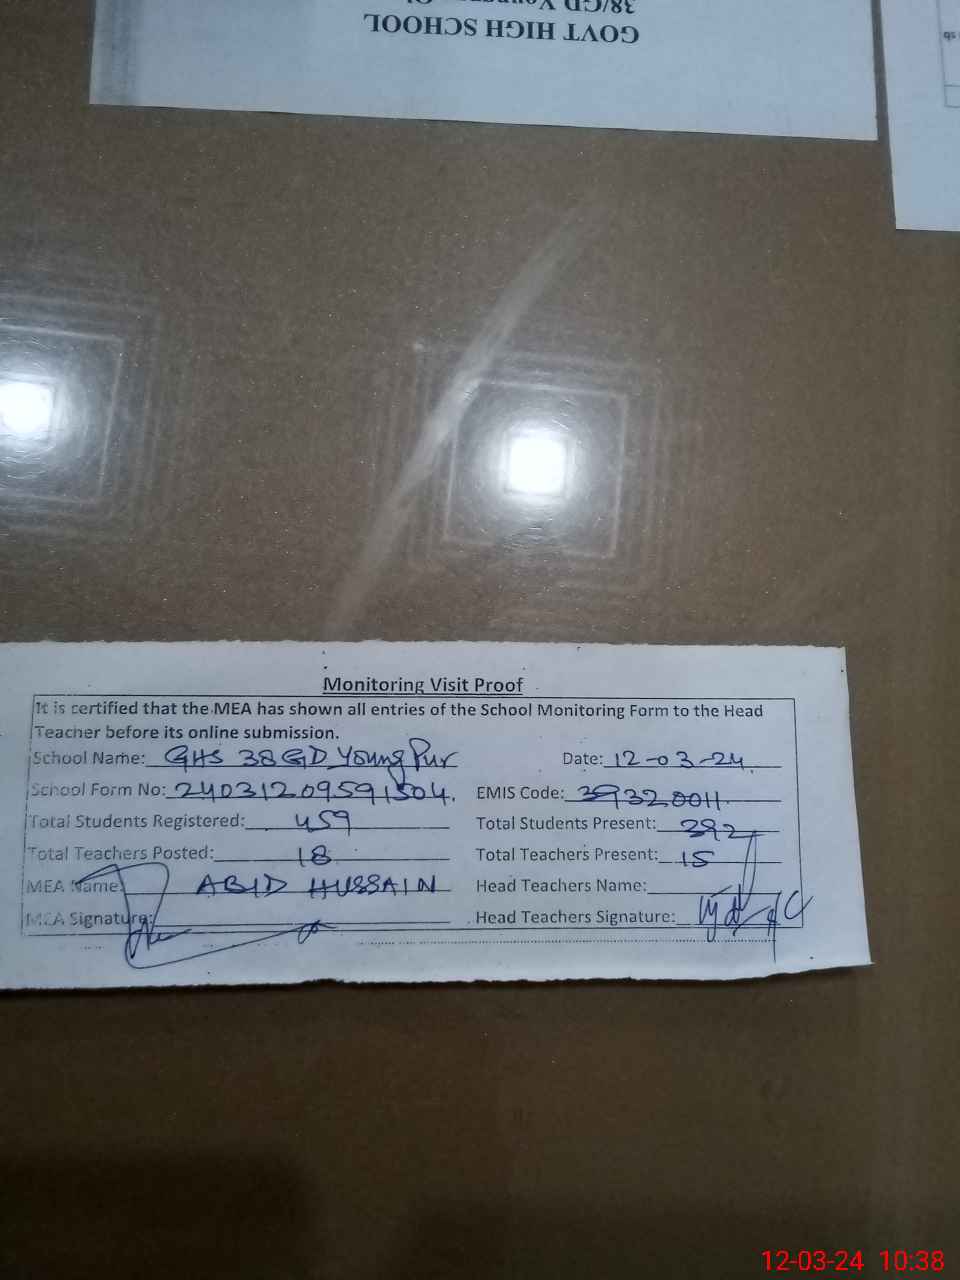 38/GD
GOVT HIGH SCHOOL
Monitoring Visit Proof
It is certified that the MEA has shown all entries of the School Monitoring Form to the Head
Teacher before its online submission.
School Name: GHS 38 GD Young Pur Date: 12-03-24
School Form No: 24031209591504. EMIS Code: 39320011
Total Students Registered: 459 Total Students Present: 392
Total Teachers Posted: 18 Total Teachers Present: 15
MEA Name: ABID HUSSAIN Head Teachers Name:
MEA Signature: Head Teachers Signature:
12-03-24 10:38